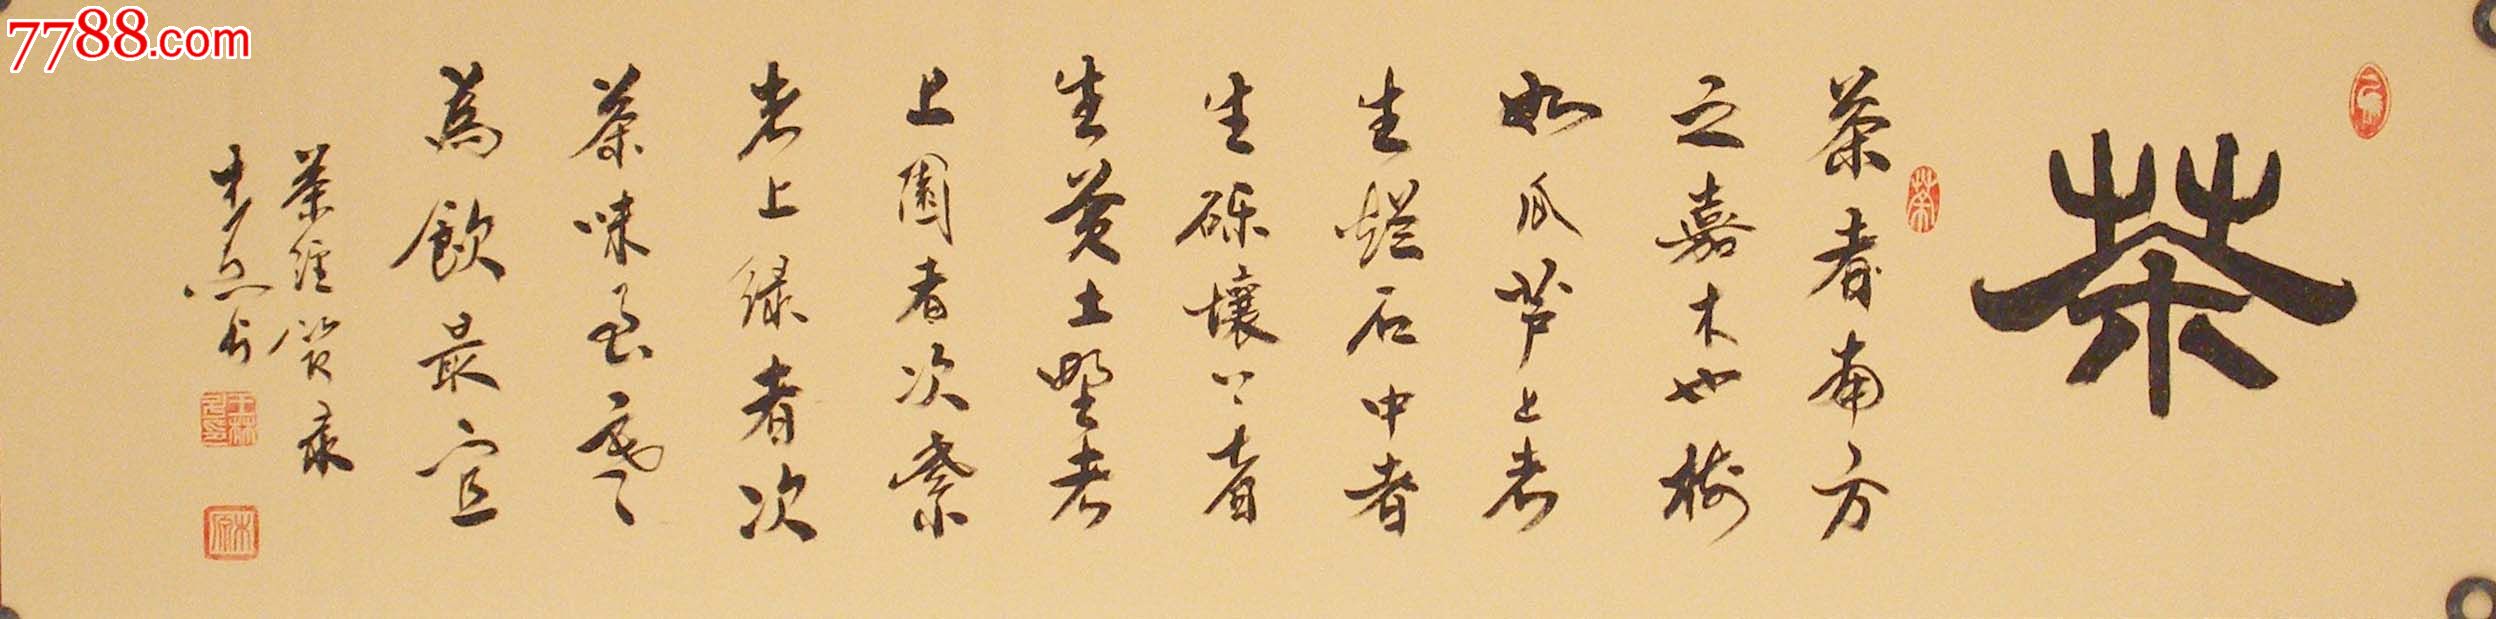 茶
茶者南方
之嘉木也树
如瓜芦上者
生烂石中者
生砾壤下者
生黄土野者
上園者次紫
者上绿者次
茶味至寒
為飲最宜
茶经節录
7788.com